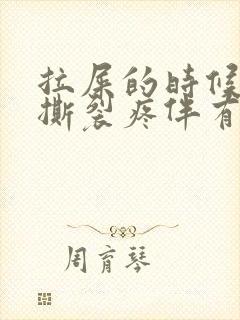 拉屎的时候
撕裂疼伴有
周育琴